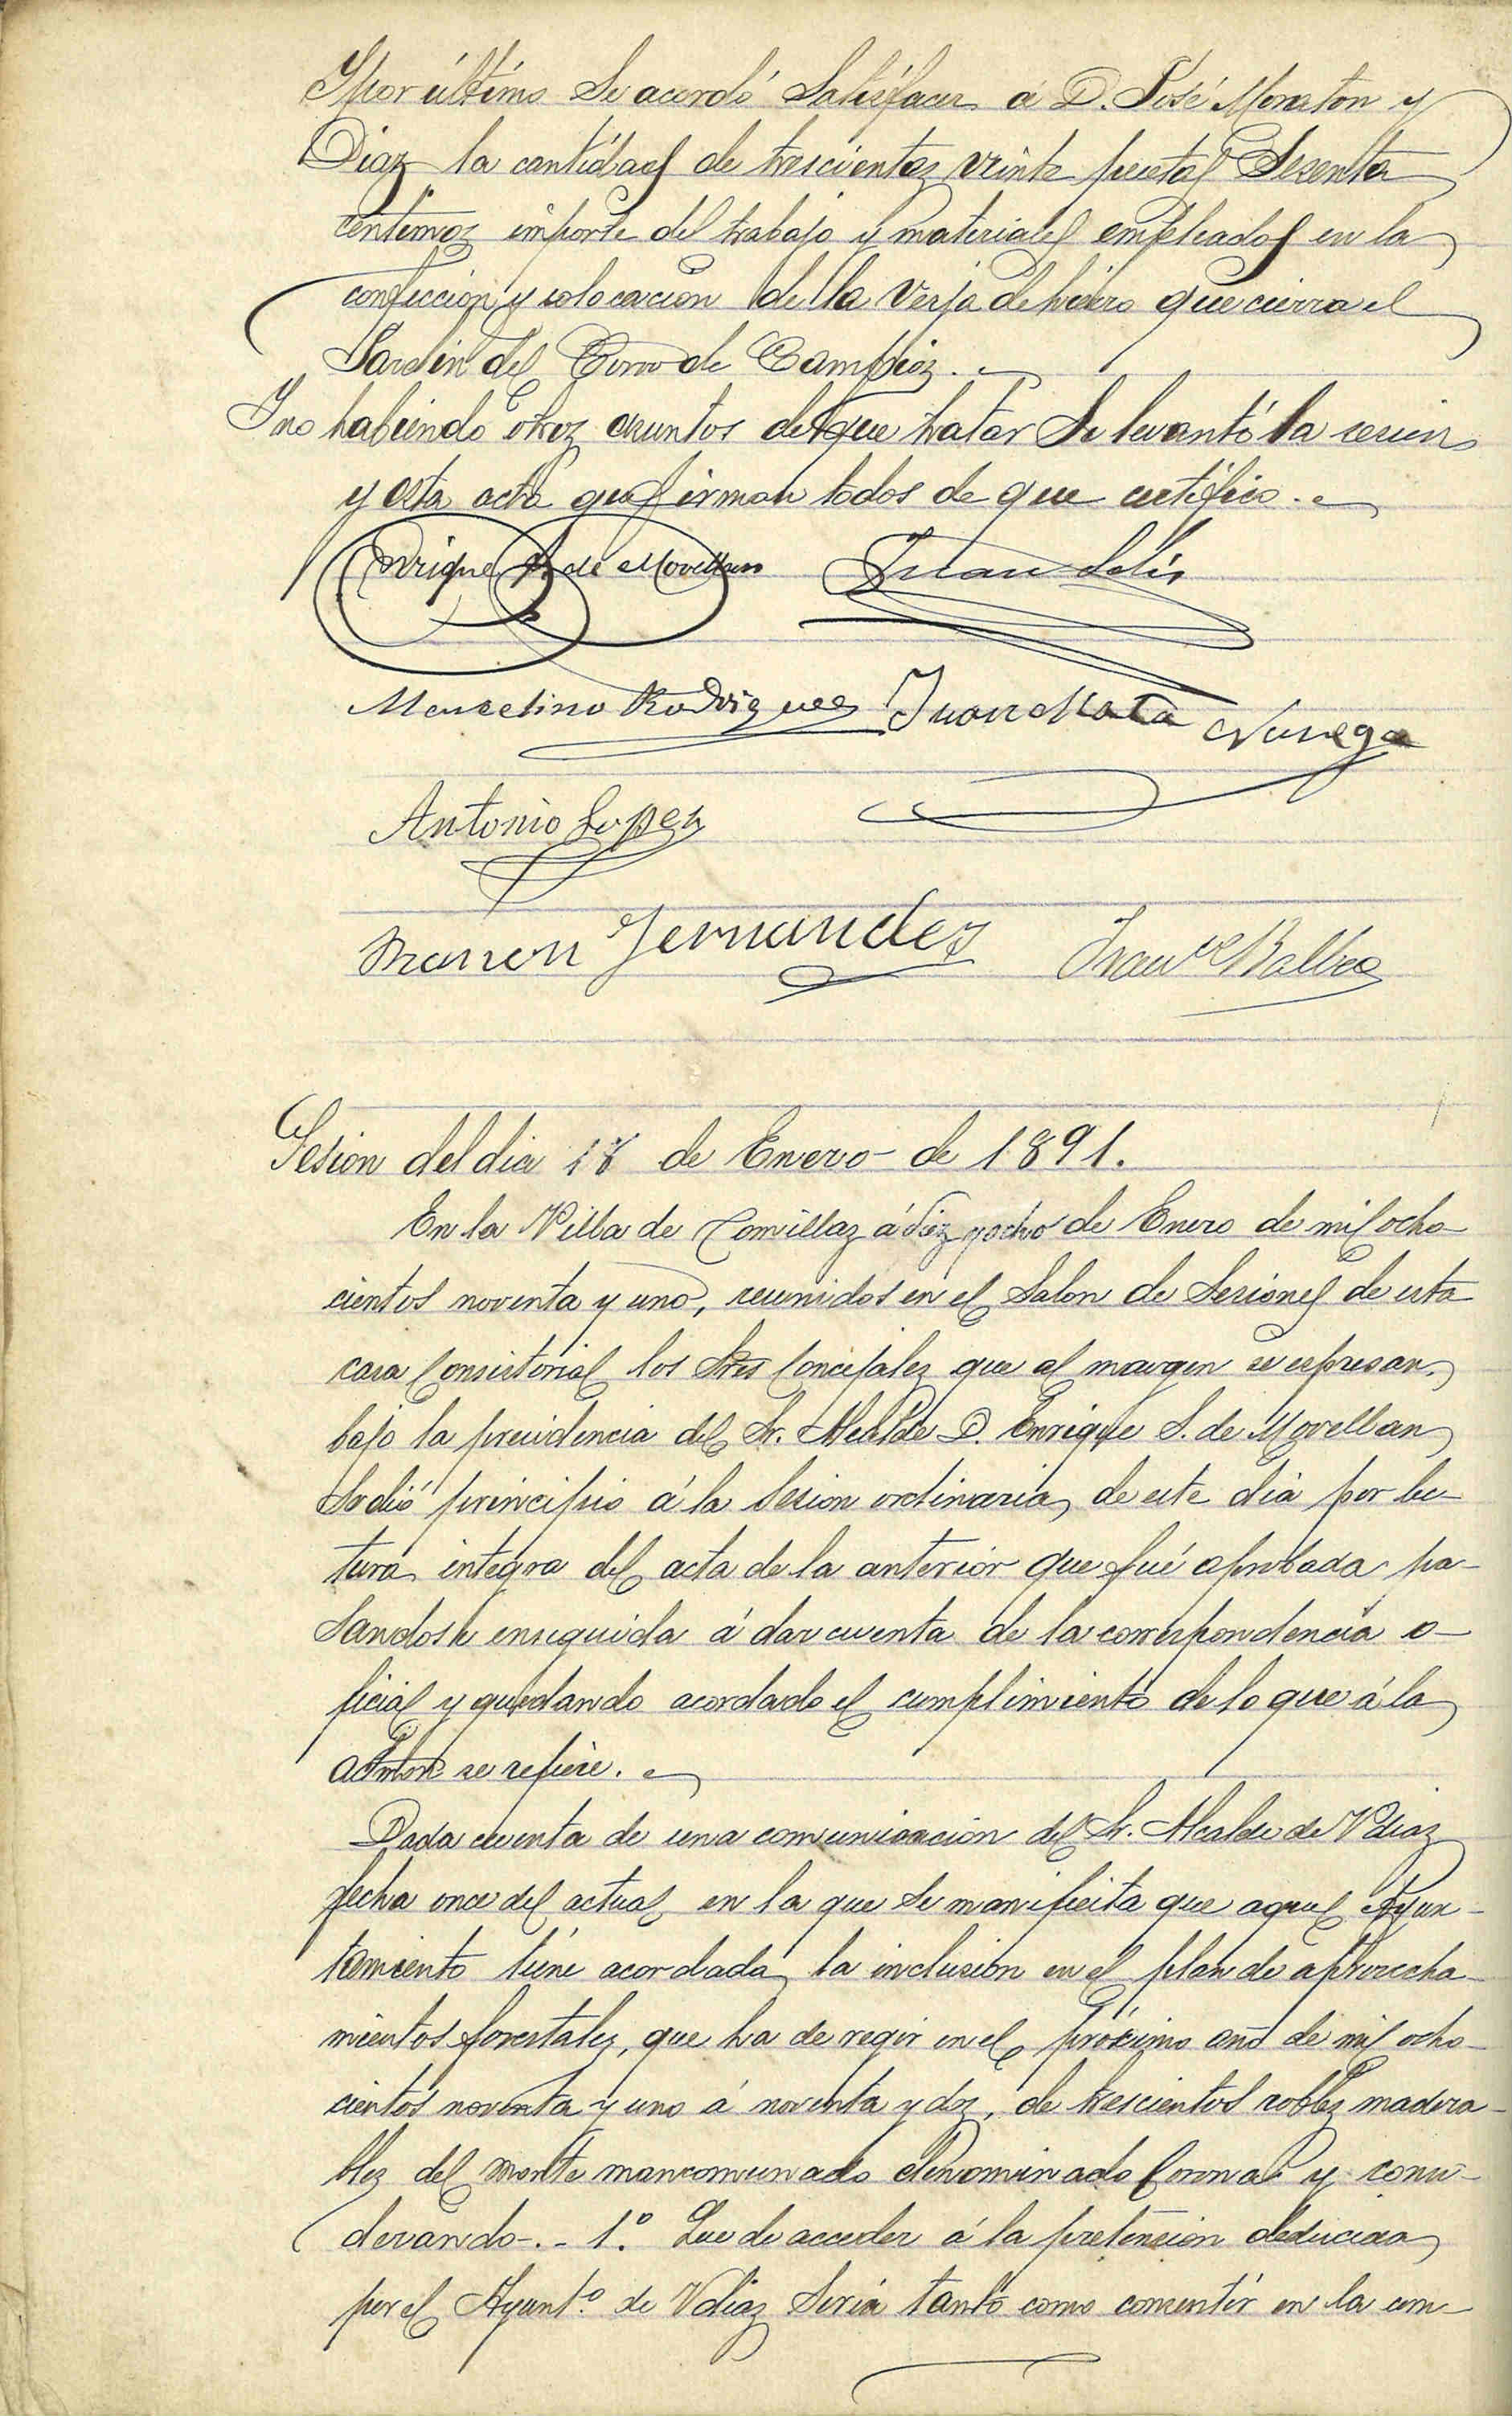 Y por último se acordó satisfacer á D. José Moraton y
Diaz la cantidad de trescientas veinte pesetas sesenta
centimos importe del trabajo y materiales empleados en la
confeccion y colocacion de la verja de hierro que cierra el
Jardin del Corro de Campios.
Y no habiendo otros asuntos de que tratar se levantó la sesion
y esta acta que firman todos de que certifico.
Enrique S. de Movellan Juan Solis
Marcelino Rodriguez Juan Mata Noriega
Antonio Lopez
Ramon Fernandez Franco Balbas
Sesion del dia 18 de Enero de 1891.
En la Villa de Comillas á diez y ocho de Enero de mil ocho-
cientos noventa y uno, reunidos en el Salon de Sesiones de esta
casa Consistorial los Sres Concejales que al margen se espresan,
bajo la presidencia del Sr. Alcalde D. Enrique S. de Movellan
se dió principio á la sesion ordinaria de este dia por lec-
tura integra del acta de la anterior que fué aprobada pa-
sandose enseguida á dar cuenta de la correspondencia o-
ficial y quedando acordado el cumplimiento de lo que á la
admon se refiere.
Dada cuenta de una comunicacion del Sr. Alcalde de Vdias
fecha once del actual en la que se manifiesta que aquel Ayun-
tamiento tiene acordada la inclusion en el plan de aprovecha-
mientos forestales, que ha de regir en el próximo año de mil ocho-
cientos noventa y uno á noventa y dos, de trescientos robles madera-
bles del monte mancomunado denominado Corona y consi-
derando-.- 1.º Que de acceder á la pretension deducida
por el Ayunt.º de Vdias seria tanto como consentir en la com-